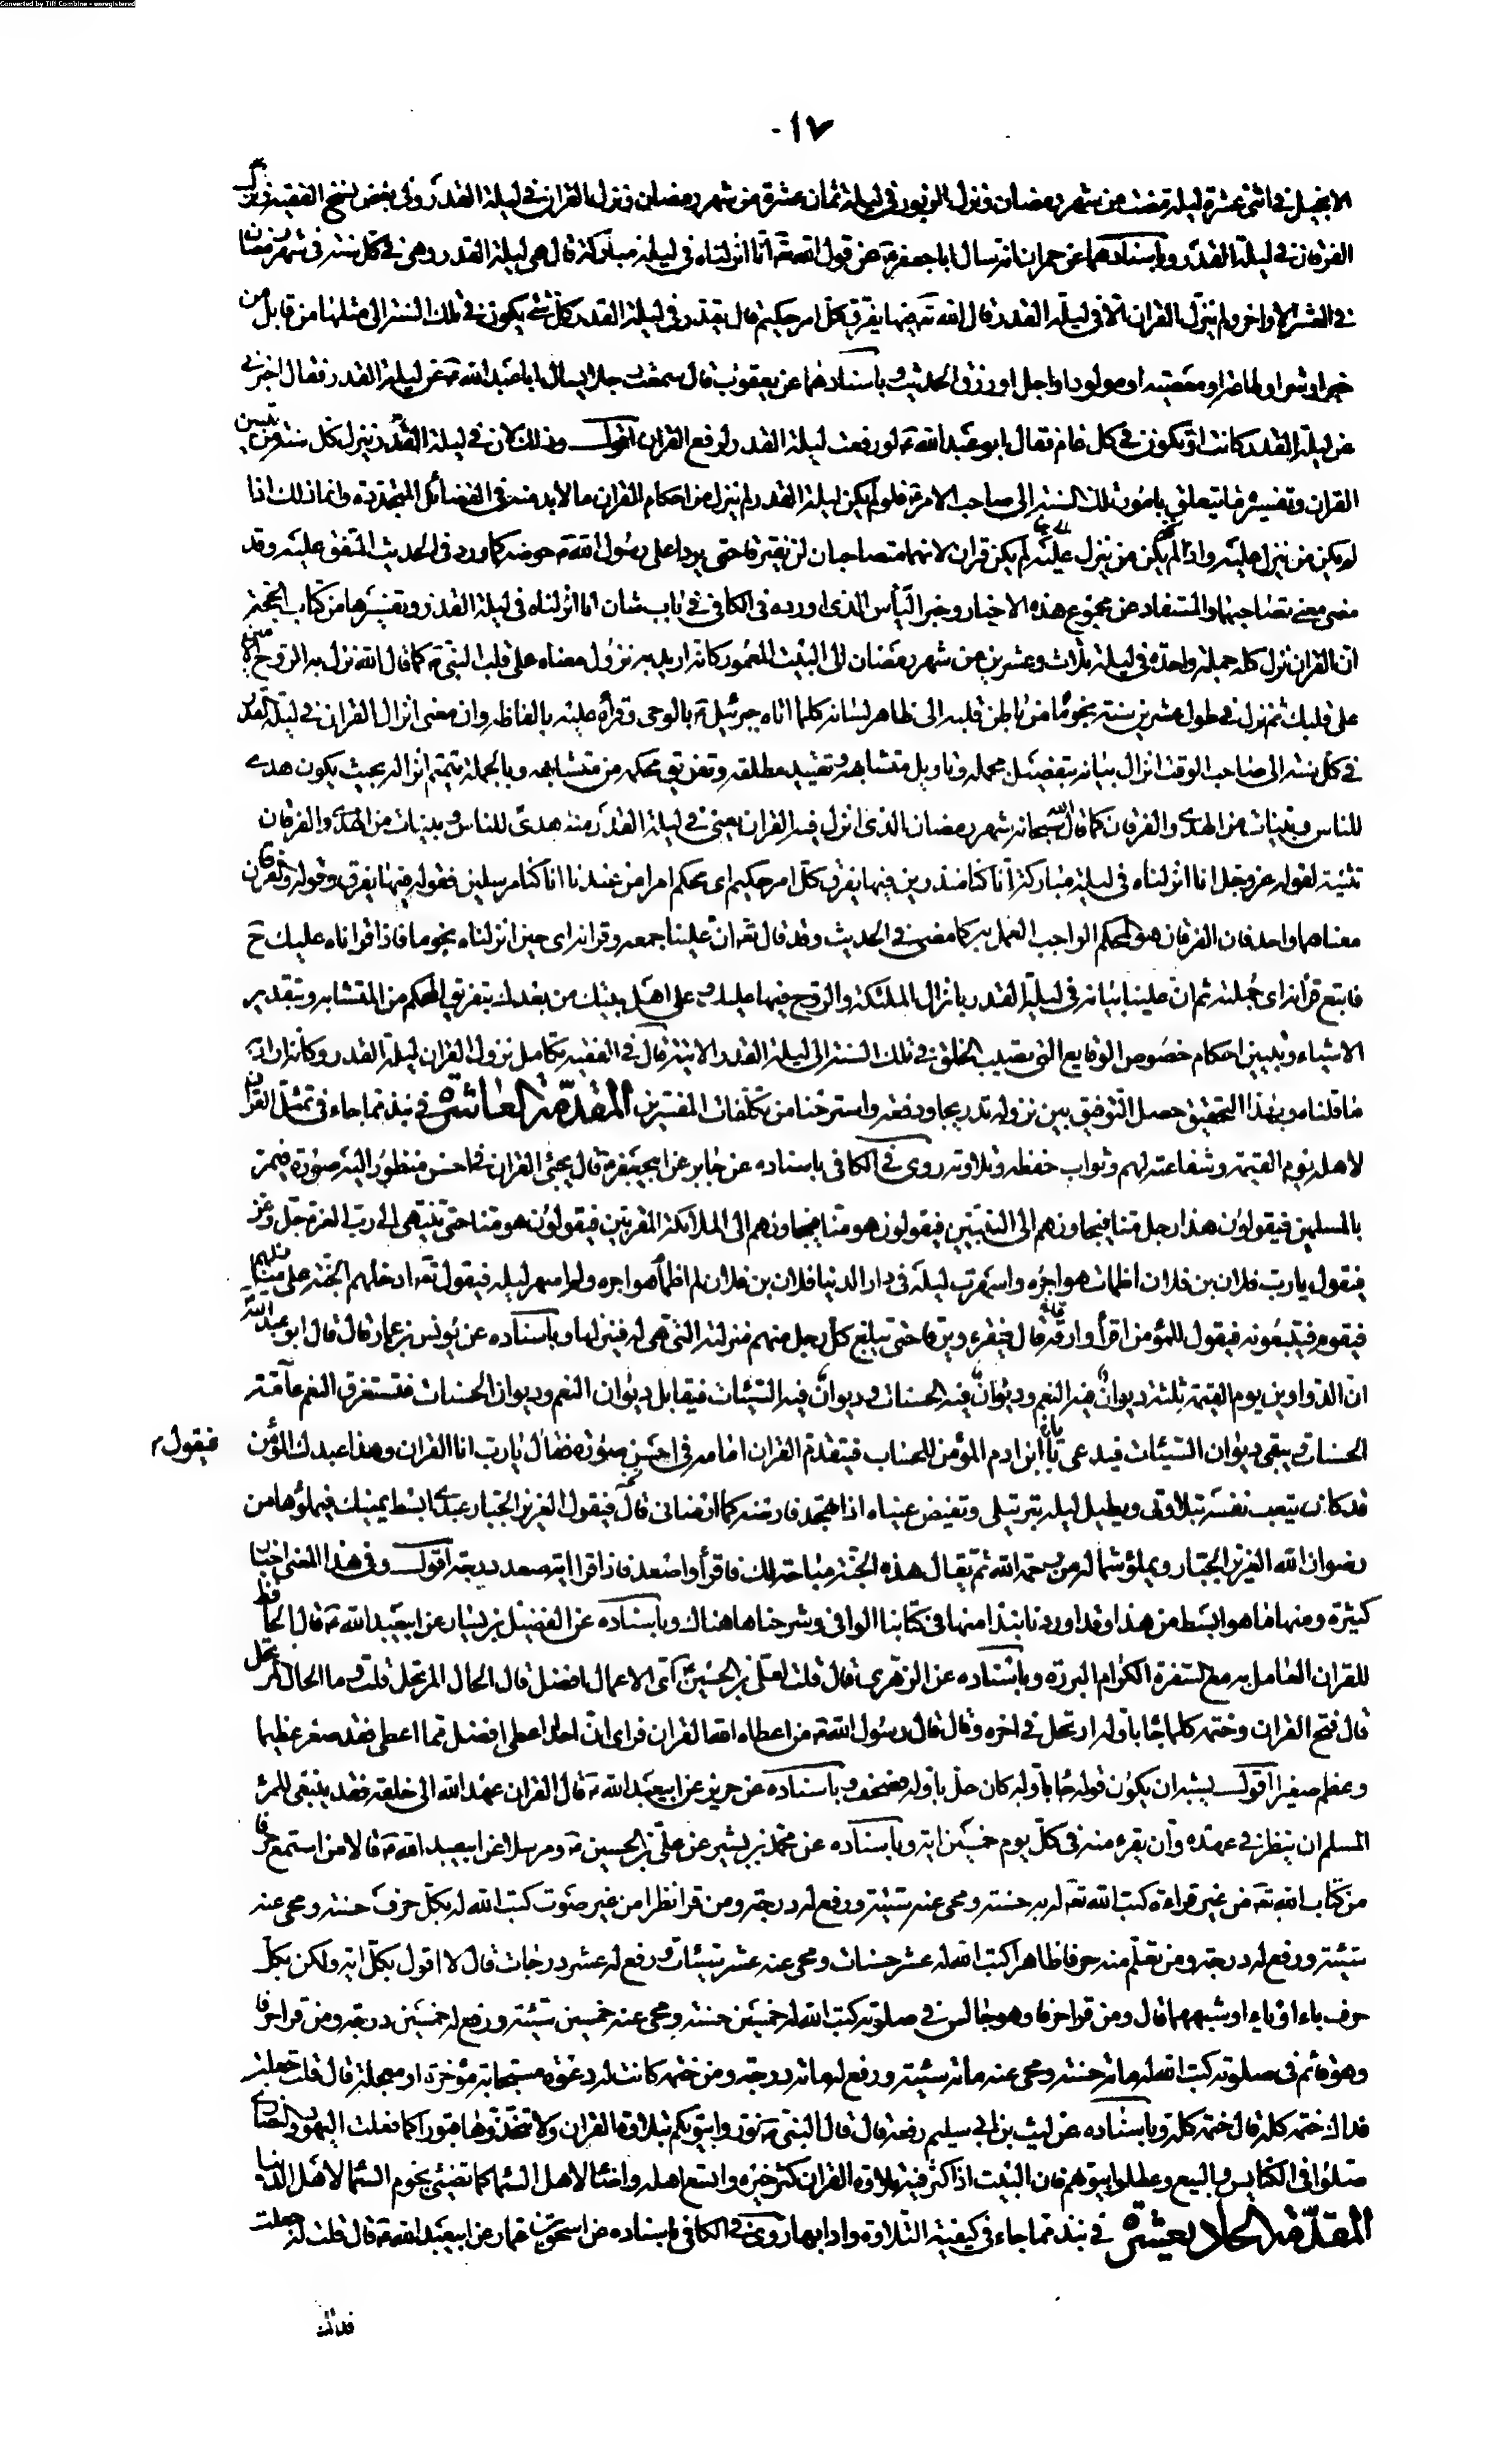 Converted by Tiff Combine - unregistered
١٧٠
الانجيل في اثنتي عشرة ليلة مضت من شهر رمضان ونزل الزبور في ليلة ثمان عشرة من شهر رمضان ونزل القران في ليلة القدر وفي بعض نسخ الفقيه نزل
الفرقان في ليلة القدر وباسنادهما عن حمران انه سال ابا جعفر عن قول الله تعه انا انزلناه في ليلة مباركة قال هي ليلة القدر وهي في كل سنة في شهر رمضان
في العشر الاواخر ولم ينزل القران الا في ليلة القدر قال الله تعه فيها يفرق كل امر حكيم قال يقدر في ليلة القدر كل شئ يكون في تلك السنة الى مثلها من قابل من
خير او شر او طاعة او معصية او مولود او اجل او رزق الحديث وباسنادهما عن يعقوب قال سمعت رجلا يسال ابا عبد الله عن ليلة القدر فقال اخبرني
عن ليلة القدر كانت او تكون في كل عام فقال ابو عبد الله لو رفعت ليلة القدر لرفع القران اقول وذلك لان في ليلة القدر ينزل كل سنة من تبيين
القران وتفسيره ما يتعلق بامور تلك السنة الى صاحب الامر فلو لم يكن ليلة القدر لم ينزل من احكام القران ما لا بد منه في القضايا المتجددة وانما ذلك اذا
لم يكن من ينزل عليه واذا لم يكن من ينزل عليه لم يكن قران لانهما متصاحبان لن يفترقا حتى يردا على رسول الله حوضه كما ورد في الحديث المتفق عليه وقد
مضى معنى تصاحبهما والمستفاد من مجموع هذه الاخبار وخبر الياس الذي اورده في الكافي في باب شان انا انزلناه في ليلة القدر وتفسيرها من كتاب الحجة
ان القران نزل كله جملة واحدة في ليلة ثلاث وعشرين من شهر رمضان الى البيت المعمور كانه اريد به نزول معناه على قلب النبي كما قال الله نزل به الروح الامين
على قلبك ثم نزل في طول عشرين سنة نجوما من باطن قلبه الى ظاهر لسانه كلما اتاه جبرئيل بالوحي وقرأه عليه بالفاظه وان معنى انزال القران في ليلة القدر
في كل سنة الى صاحب الوقت انزال بيانه بتفصيل مجمله وتاويل متشابهه وتقييد مطلقه وتفريق محكمه من متشابهه وبالجملة تتميم انزاله بحيث يكون هدى
للناس وبينات من الهدى والفرقان كما قال الله سبحانه شهر رمضان الذي انزل فيه القران يعني في ليلة القدر منه هدى للناس وبينات من الهدى والفرقان
تثنية لقوله عز وجل انا انزلناه في ليلة مباركة انا كنا منذرين فيها يفرق كل امر حكيم اي محكم امرا من عندنا انا كنا مرسلين فقوله فيها يفرق وقوله والفرقان
معناهما واحد فان الفرقان هو المحكم الواجب العمل به كما مضى في الحديث وقد قال تعه ان علينا جمعه وقرانه اي حين انزلناه نجوما فاذا قراناه عليك ح
فاتبع قرانه اي جملته ثم ان علينا بيانه في ليلة القدر بانزال الملئكة والروح فيها عليك وعلى اهل بيتك من بعدك بتفريق المحكم من المتشابه وبتقدير
الاشياء وتبيين احكام خصوص الوقايع التي تصيب الخلق في تلك السنة الى ليلة القدر الاتية قال في الفقيه تكامل نزول القران ليلة القدر وكانه اراد به
ما قلناه وبهذا التحقيق حصل التوفيق بين نزوله تدريجا ودفعة واسترحنا من تكلفات المفسرين المقدمة العاشرة في نبذ مما جاء في تمثل القران
لاهله يوم القيمة وشفاعته لهم وثواب حفظه وتلاوته روى في الكافي باسناده عن جابر عن ابي جعفر قال يجئ القران في احسن منظور اليه صورة فيمر
بالمسلمين فيقولون هذا رجل منا فيجاوزهم الى النبيين فيقولون هو منا فيجاوزهم الى الملائكة المقربين فيقولون هو منا حتى ينتهي الى رب العزة جل وعز
فيقول يا رب فلان بن فلان اظمات هواجره واسهرت ليله في دار الدنيا وفلان بن فلان لم اظمأ هواجره ولم اسهر ليله فيقول تعه ادخلهم الجنة على منازلهم
فيقوم فيتبعونه فيقول للمؤمن اقرأ وارقه قال فيقرء ويرقا حتى يبلغ كل رجل منهم منزلته التي هي له فينزلها وباسناده عن يونس بن عمار قال قال ابو عبد الله
ان الدواوين يوم القيمة ثلثة ديوان فيه النعم وديوان فيه الحسنات وديوان فيه السيئات فيقابل ديوان النعم وديوان الحسنات فتستغرق النعم عامة
الحسنات ويبقى ديوان السيئات فيدعى بابن ادم المؤمن للحساب فيتقدم القران امامه في احسن صورة فيقول يا رب انا القران وهذا عبدك المؤمن
قد كان يتعب نفسه بتلاوتي ويطيل ليله بترتيلي وتفيض عيناه اذا تهجد فارضه كما ارضاني قال فيقول العزيز الجبار عبدي ابسط يمينك فيملؤها من
رضوان الله العزيز الجبار ويملؤ شماله من رحمة الله ثم يقال هذه الجنة مباحة لك فاقرأ واصعد فاذا قرا اية صعد درجة اقول وفي هذا المعنى اخبار
كثيرة ومنها ما هو ابسط من هذا وقد اوردنا نبذا منها في كتابنا الوافي وشرحناها هناك وباسناده عن الفضيل بن يسار عن ابي عبد الله قال الحافظ
للقران العامل به مع السفرة الكرام البررة وباسناده عن الزهري قال قلت لعلي بن الحسين اي الاعمال افضل قال الحال المرتحل قلت وما الحال المرتحل
قال فتح القران وختمه كلما جا باوله ارتحل في اخره وقال قال رسول الله من اعطاه الله القران فراى ان احدا اعطي افضل مما اعطي فقد صغر عظيما
وعظم صغيرا اقول يشبه ان يكون قوله جا باوله كان حل باوله فصحف وباسناده عن حريز عن ابي عبد الله قال القران عهد الله الى خلقه فقد ينبغي للمرء
المسلم ان ينظر في عهده وان يقرء منه في كل يوم خمسين اية وباسناده عن محمد بن بشير عن علي بن الحسين ومرسلا عن ابي عبد الله قالا من استمع حرفا
من كتاب الله تعه من غير قراءة كتب الله تعه له به حسنة ومحى عنه سيئة ورفع له درجة ومن قرا نظرا من غير صوت كتب الله له بكل حرف حسنة ومحى عنه
سيئة ورفع له درجة ومن تعلم منه حرفا ظاهرا كتب الله له عشر حسنات ومحى عنه عشر سيئات ورفع له عشر درجات قال لا اقول بكل اية ولكن بكل
حرف باء او ياء او شبههما قال ومن قرا حرفا وهو جالس في صلوته كتب الله له خمسين حسنة ومحى عنه خمسين سيئة ورفع له خمسين درجة ومن قرا حرفا
وهو قائم في صلوته كتب الله له مائة حسنة ومحى عنه مائة سيئة ورفع له مائة درجة ومن ختمه كانت له دعوة مستجابة مؤخرة او معجلة قال قلت جعلت
فداك ختمه كله قال ختمه كله وباسناده عن ليث بن ابي سليم رفعه قال قال النبي نوروا بيوتكم بتلاوة القران ولا تتخذوها قبورا كما فعلت اليهود والنصارى
صلوا في الكنايس والبيع وعطلوا بيوتهم فان البيت اذا كثر فيه تلاوة القران كثر خيره واتسع اهله واضئا لاهل السماء كما تضئ نجوم السماء لاهل الدنيا
المقدمة الحادية عشرة في نبذ مما جاء في كيفية التلاوة وادابها روى في الكافي باسناده عن اسحق بن عمار عن ابي عبد الله قال قلت له جعلت
فداك